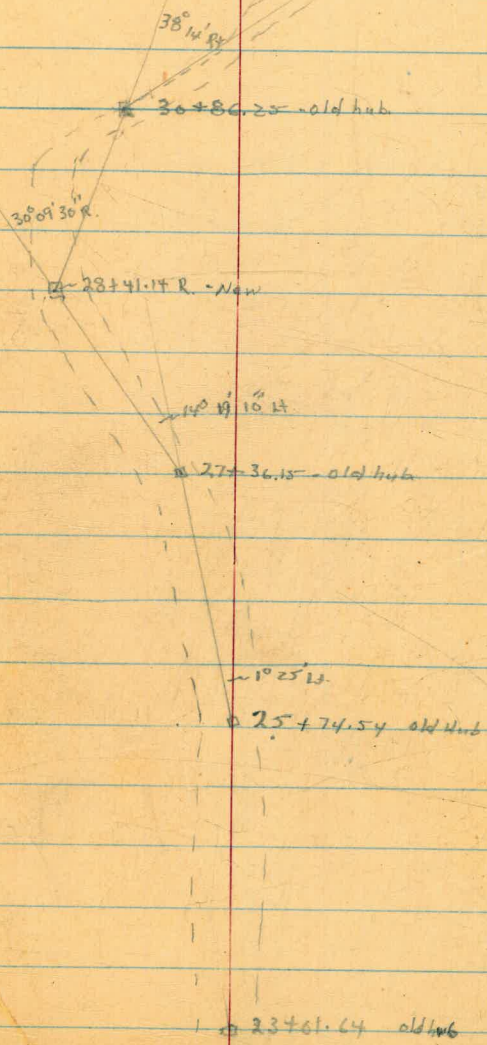 38° 14' Rt
30+86.25 - old hub
30° 09' 30" R.
28+41.14 R. - New
14° 19' 10" Lt
27+36.15 - old hub
1° 25' Lt.
25+74.54 old Hub
23+61.64 old hub